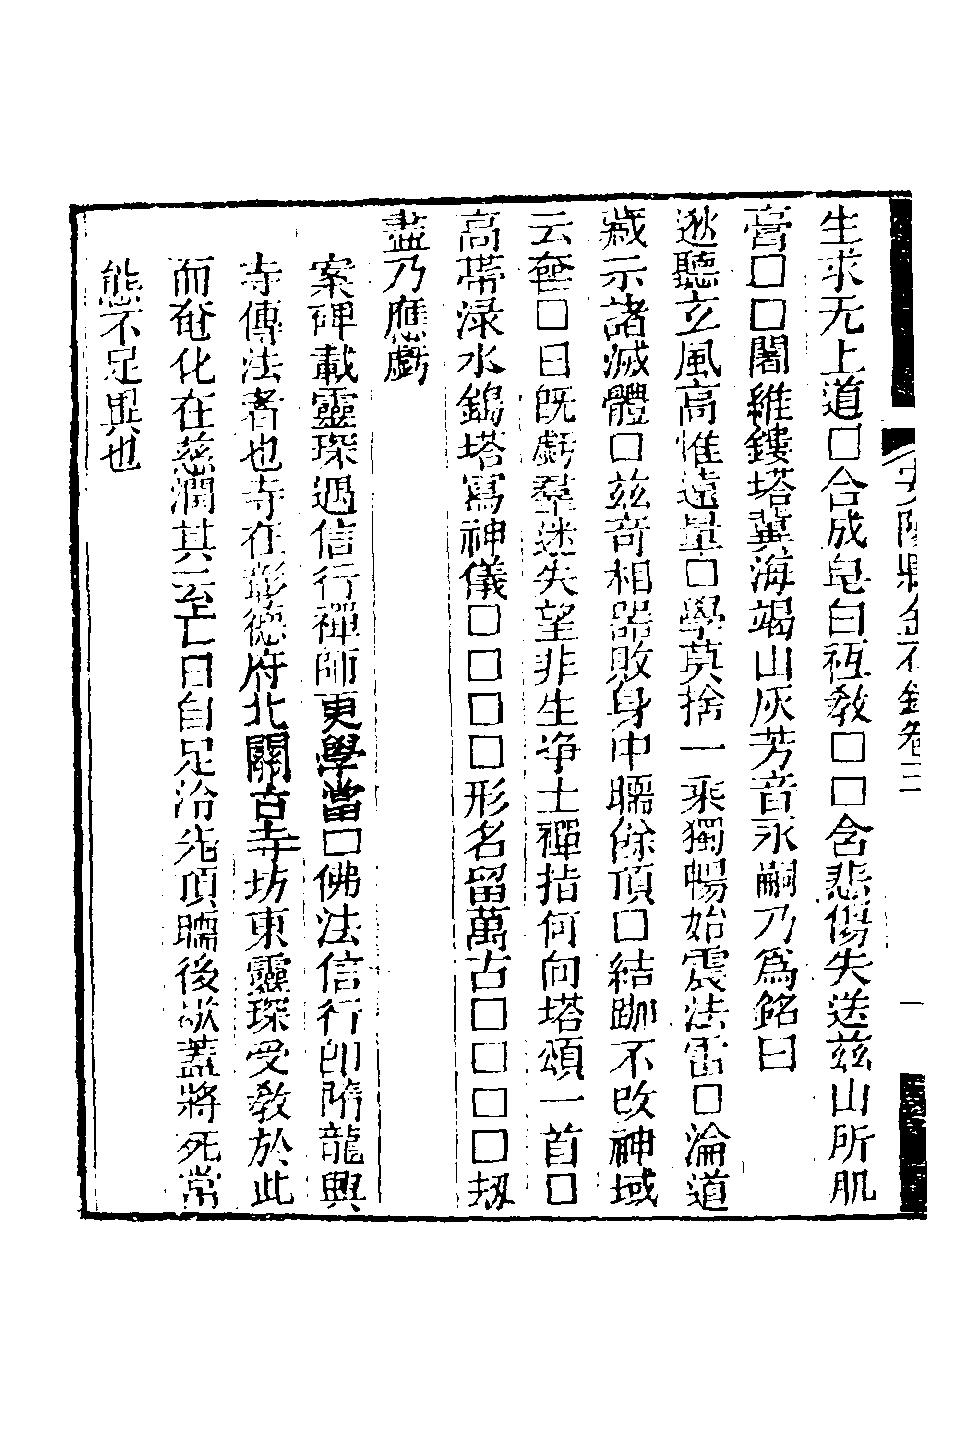 安陽縣金石錄卷三
生求无上道□合成皂白衹敎□□含悲傷失送兹山所肌
膏□□闍維鏤塔冀海竭山灰芳音永嗣乃爲銘曰
逖聽玄風高惟遠量□學莫捨一乘獨暢始震法雷□淪道
藏示諸滅體□兹奇相器敗身中暖餘頂□結跏不改神域
云奄□日既虧羣迷失望非生淨土禪指何向塔頌一首□
高帶渌水鎢塔寫神儀□□□□形名留萬古□□□□刼
盡乃應虧
案碑載靈琛遇信行禪師更學當□佛法信行卽隋龍興
寺傳法者也寺在彰德府北關古寺坊東靈琛受敎於此
而奄化在慈潤其云至亡日自足冷先頂暖後歇蓋將死常
態不足異也